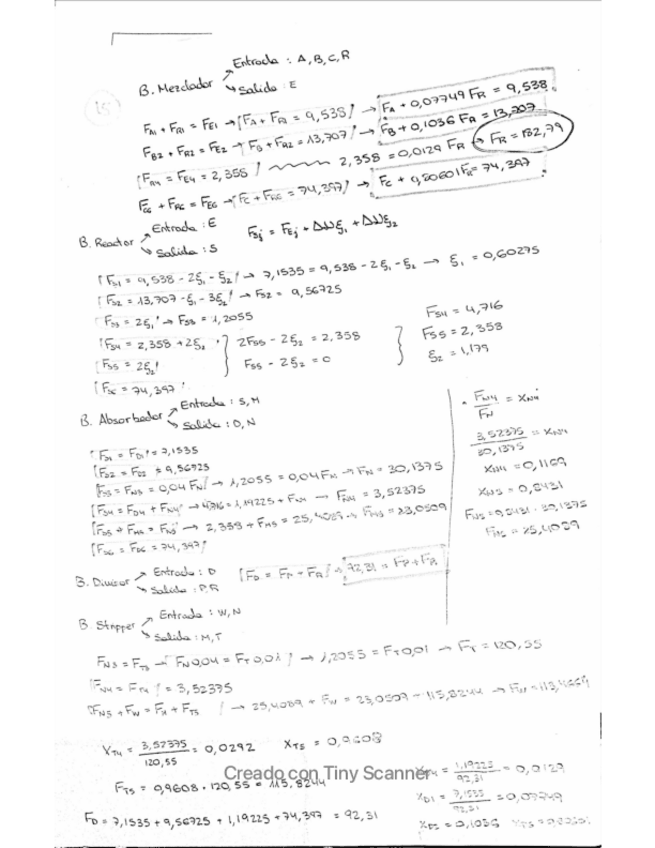 Entrada : A, B, C, R
B. Mezclador
Salida : E
FA1 + FR1 = FE1 → FA + FR1 = 9,538 → FA + 0,07749 FR = 9,538
FB2 + FR2 = FE2 → FB + FR2 = 13,707 → FB + 0,1036 FR = 13,707
FR4 = FE4 = 2,358 2,358 = 0,0129 FR → FR = 182,79
FC6 + FR6 = FE6 → FC + FR6 = 74,397 → FC + 0,80601 FR = 74,397
B. Reactor
Entrada : E
Salida : S
FSj = FEj + ΔVξ1 + ΔVξ2
FS1 = 9,538 - 2ξ1 - ξ2 → 7,1535 = 9,538 - 2ξ1 - ξ2 → ξ1 = 0,60275
FS2 = 13,707 - ξ1 - 3ξ2 → FS2 = 9,56725
FS3 = 2ξ1 → FS3 = 1,2055
FS4 = 2,358 + 2ξ2 } 2FS5 - 2ξ2 = 2,358
FS5 = 2ξ2 FS5 - 2ξ2 = 0
} FS4 = 4,716
FS5 = 2,358
ξ2 = 1,179
FS6 = 74,397
B. Absorbedor
Entrada : S, M
Salida : D, N
FS1 = FD1 = 7,1535
FS2 = FD2 = 9,56725
FS3 = FN3 = 0,04 FN → 1,2055 = 0,04 FN → FN = 30,1375
FS4 = FD4 + FN4 → 4,716 = 1,19225 + FN4 → FN4 = 3,52375
FS5 + FM5 = FN5 → 2,358 + FM5 = 25,4089 → FM5 = 23,0509
FS6 = FD6 = 74,397
FN4 / FN = XN4
3,52375 / 30,1375 = XN4
XN4 = 0,1169
XN5 = 0,8431
FN5 = 0,8431 · 30,1375
FN5 = 25,4089
B. Divisor
Entrada : D
Salida : P, R
FD = FP + FR → 92,31 = FP + FR
B. Stripper
Entrada : W, N
Salida : M, T
FN3 = FT3 → FN 0,04 = FT 0,01 → 1,2055 = FT 0,01 → FT = 120,55
FN4 = FT4 = 3,52375
FN5 + FW = FM + FT5 → 25,4089 + FW = 23,0509 + 115,8244 → FW = 113,4664
XT4 = 3,52375 / 120,55 = 0,0292 XT5 = 0,9608
FT5 = 0,9608 · 120,55 = 115,8244
FD = 7,1535 + 9,56725 + 1,19225 + 74,397 = 92,31
XD4 = 1,19225 / 92,31 = 0,0129
XD1 = 7,1535 / 92,31 = 0,07749
XD2 = 0,1036
Creado con Tiny Scanner